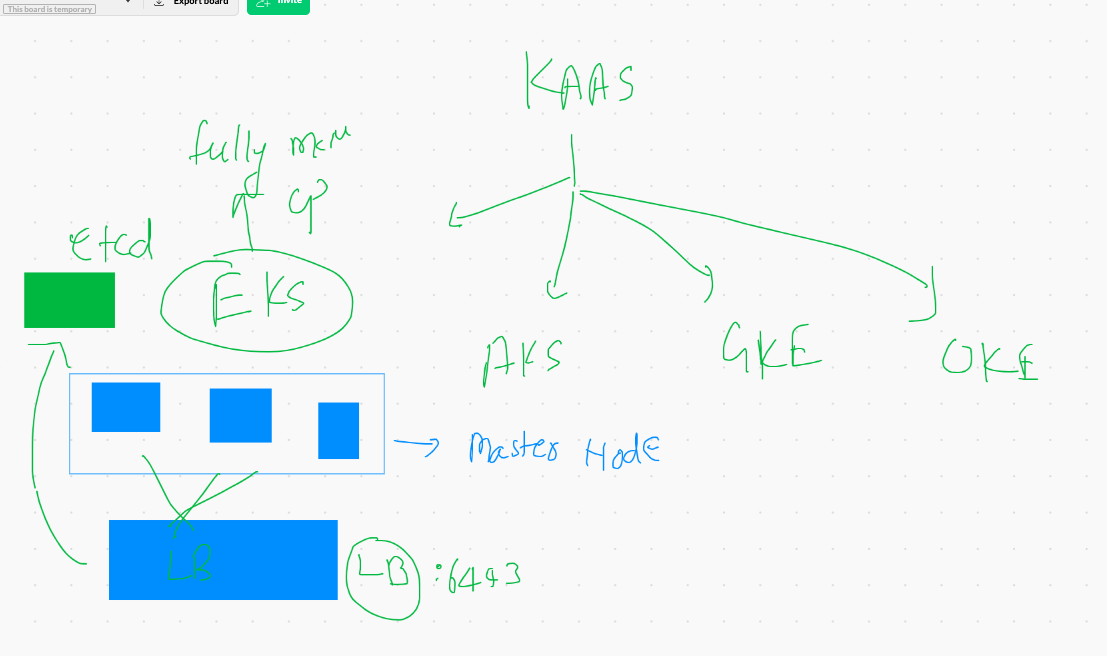 This board is temporary
Export board
Invite
KAAS
fully
CP
Etcd
EKS
AKS
GKE
OKE
Master Node
LB
LB :6443